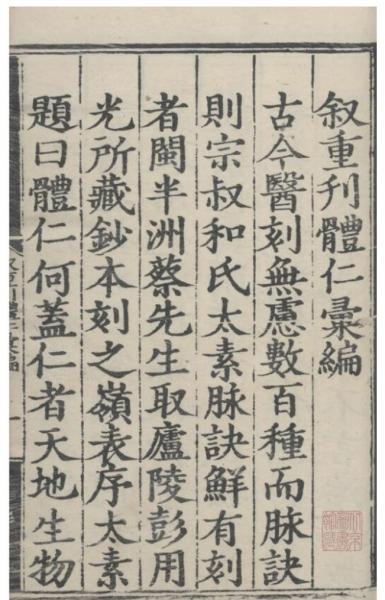 叙重刊體仁彙編
古今醫刻無慮數百種而脉訣
則宗叔和氏太素脉訣鮮有刻
者閩半洲蔡先生取廬陵彭用
光所藏鈔本刻之嶺表序太素
題曰體仁何蓋仁者天地生物